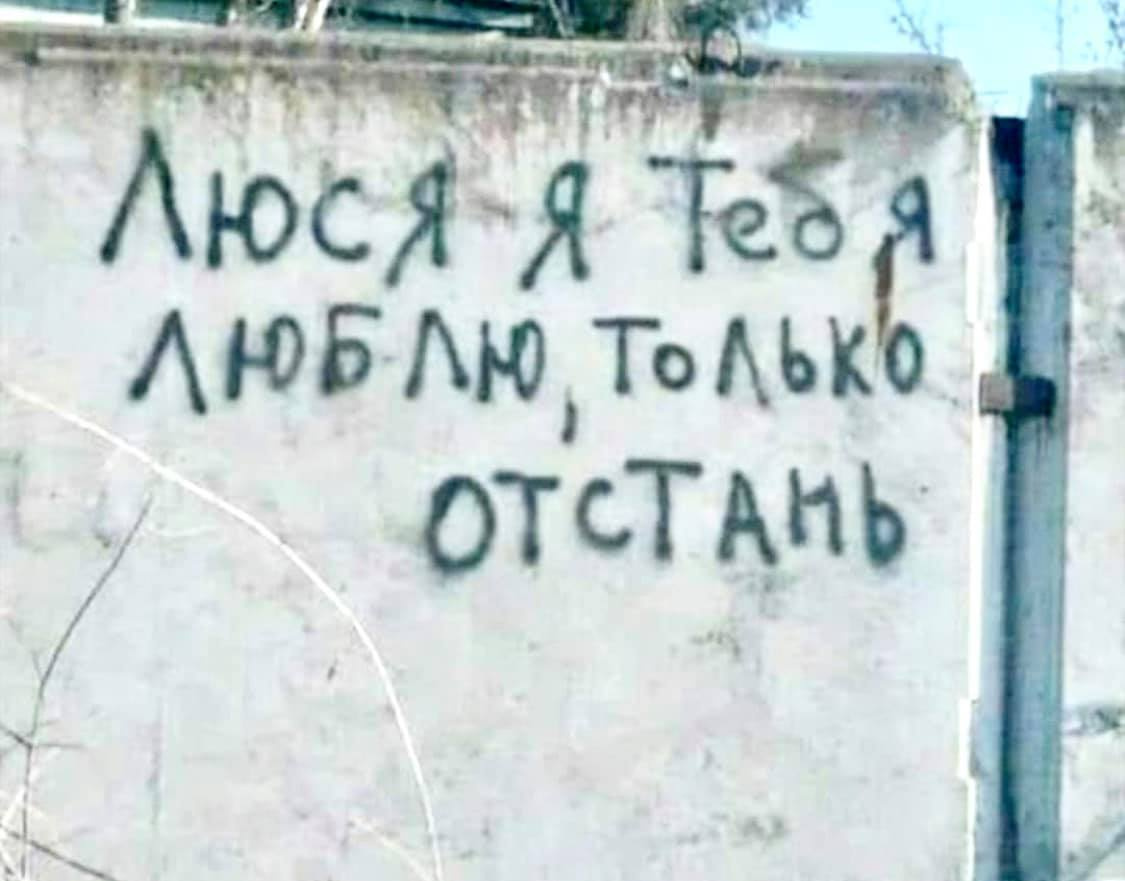 Люся я Тебя
люблю, только
отстань